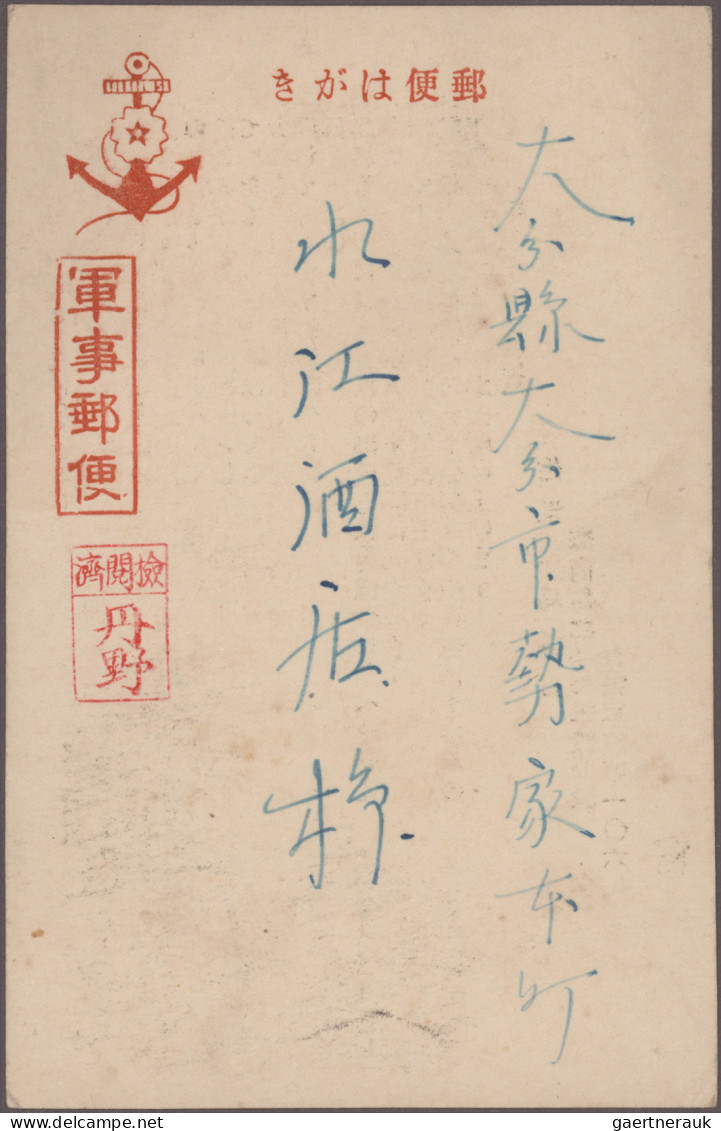 郵便はがき
大分縣大分市勢家本町
水江酒店様
軍事郵便
檢閲濟
丹野
gaertnerauk